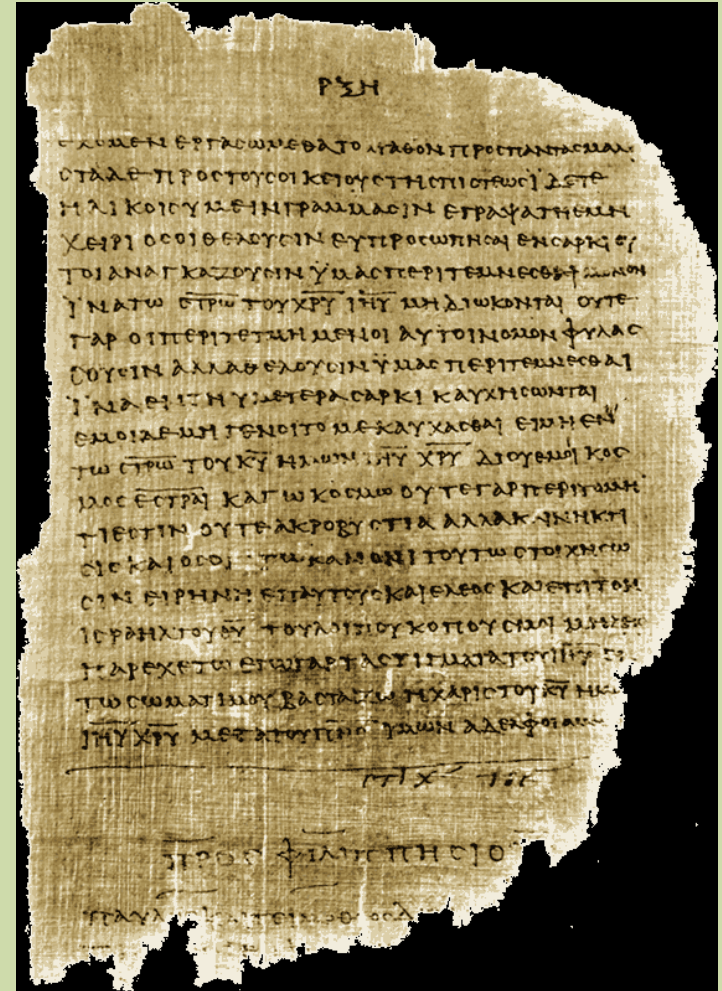 ΡΞΗ
ΕΧΟΜΕΝ ΕΡΓΑϹΩΜΕΘΑ ΤΟ ΑΓΑΘΟΝ ΠΡΟϹ ΠΑΝΤΑϹ ΜΑΛΙ
ϹΤΑ ΔΕ ΠΡΟϹ ΤΟΥϹ ΟΙΚΕΙΟΥϹ ΤΗϹ ΠΙϹΤΕΩϹ ΪΔΕΤΕ
ΗΛΙΚΟΙϹ ΥΜΕΙΝ ΓΡΑΜΜΑϹΙΝ ΕΓΡΑΨΑ ΤΗ ΕΜΗ
ΧΕΙΡΙ ΟϹΟΙ ΘΕΛΟΥϹΙΝ ΕΥΠΡΟϹΩΠΗϹΑΙ ΕΝ ϹΑΡΚΙ ΟΥ
ΤΟΙ ΑΝΑΓΚΑΖΟΥϹΙΝ ΫΜΑϹ ΠΕΡΙΤΕΜΝΕϹΘΑΙ ΜΟΝΟΝ
ΪΝΑ ΤΩ Ϲ̅Τ̅Ρ̅Ω̅ ΤΟΥ Χ̅Ρ̅Υ̅ Ι̅Η̅Υ̅ ΜΗ ΔΙΩΚΟΝΤΑΙ ΟΥΤΕ
ΓΑΡ ΟΙ ΠΕΡΙΤΕΤΜΗΜΕΝΟΙ ΑΥΤΟΙ ΝΟΜΟΝ ΦΥΛΑϹ
ϹΟΥϹΙΝ ΑΛΛΑ ΘΕΛΟΥϹΙΝ ΫΜΑϹ ΠΕΡΙΤΕΜΝΕϹΘΑΙ
ΪΝΑ ΕΝ ΤΗ ΥΜΕΤΕΡΑ ϹΑΡΚΙ ΚΑΥΧΗϹΩΝΤΑΙ
ΕΜΟΙ ΔΕ ΜΗ ΓΕΝΟΙΤΟ ΜΕ ΚΑΥΧΑϹΘΑΙ ΕΙ ΜΗ ΕΝ
ΤΩ Ϲ̅Τ̅Ρ̅Ω̅ ΤΟΥ Κ̅Υ̅ ΗΜΩΝ Ι̅Η̅Υ̅ Χ̅Ρ̅Υ̅ ΔΙ ΟΥ ΕΜΟΙ ΚΟϹ
ΜΟϹ Ε̅Ϲ̅Τ̅Ρ̅Α̅Ι̅ ΚΑΓΩ ΚΟϹΜΩ ΟΥΤΕ ΓΑΡ ΠΕΡΙΤΟΜΗ
ΤΙ ΕϹΤΙΝ ΟΥΤΕ ΑΚΡΟΒΥϹΤΙΑ ΑΛΛΑ ΚΑΙΝΗ ΚΤΙ
ϹΙϹ ΚΑΙ ΟϹΟΙ ΤΩ ΚΑΝΟΝΙ ΤΟΥΤΩ ϹΤΟΙΧΗϹΩ
ϹΙΝ ΕΙΡΗΝΗ ΕΠ ΑΥΤΟΥϹ ΚΑΙ ΕΛΕΟϹ ΚΑΙ ΕΠΙ ΤΟΝ
ΙϹΡΑΗΛ ΤΟΥ Θ̅Υ̅ ΤΟΥ ΛΟΙΠΟΥ ΚΟΠΟΥϹ ΜΟΙ ΜΗΔΕΙϹ
ΠΑΡΕΧΕΤΩ ΕΓΩ ΓΑΡ ΤΑ ϹΤΙΓΜΑΤΑ ΤΟΥ Ι̅Η̅Υ̅ ΕΝ
ΤΩ ϹΩΜΑΤΙ ΜΟΥ ΒΑϹΤΑΖΩ Η ΧΑΡΙϹ ΤΟΥ Κ̅Υ̅ ΗΜΩ
Ι̅Η̅Υ̅ Χ̅Ρ̅Υ̅ ΜΕΤΑ ΤΟΥ Π̅Ν̅Ϲ̅ ΥΜΩΝ ΑΔΕΛΦΟΙ ΑΜΗΝ
ϹΤΙΧ
ΠΡΟϹ ΦΙΛΙΠΠΗϹΙΟ
ΠΑΥΛΟϹ ΚΑΙ ΤΕΙΜΟΘΕΟϹ Δ